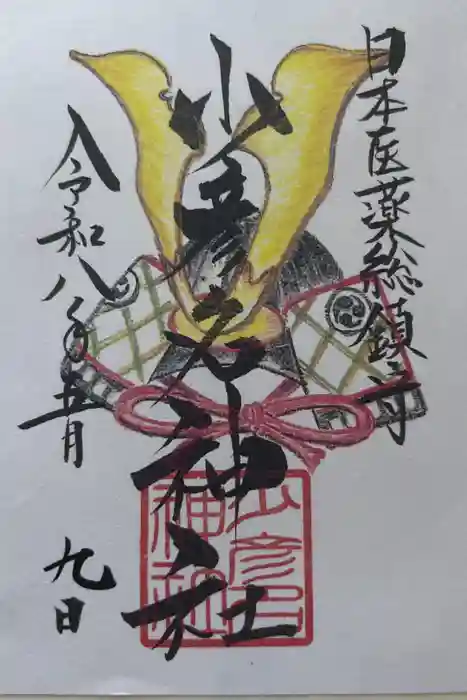 日本医薬総鎮守
小彦名神社
令和八年五月九日
小彦名
神社